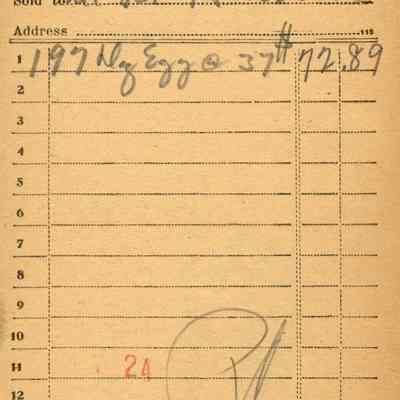 Sold to
Address 115
1 197 Dz Egg @ 37# 72.89
2
3
4
5
6
7
8
9
10
11 24
12